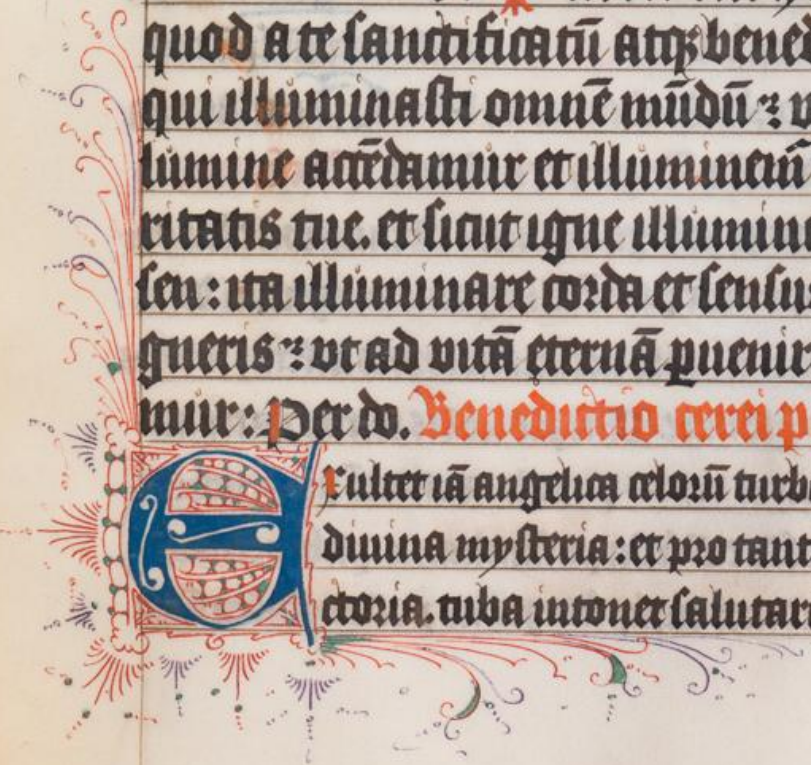 quod a te sanctificatū atqꝫ bened
qui illuminasti omnē mūdū ⁊ v
lumine accēdamur et illuminem̄
ritatis tue. et sicut igne illumin
sen: ita illuminare corda et sensus
gneris ⁊ vt ad vitā eternā ꝑuenir
mur: Per do. Benedictio cerei p
Exultet iā angelica celorū turb
diuina mysteria: et pro tant
ctoria. tuba intonet salutari